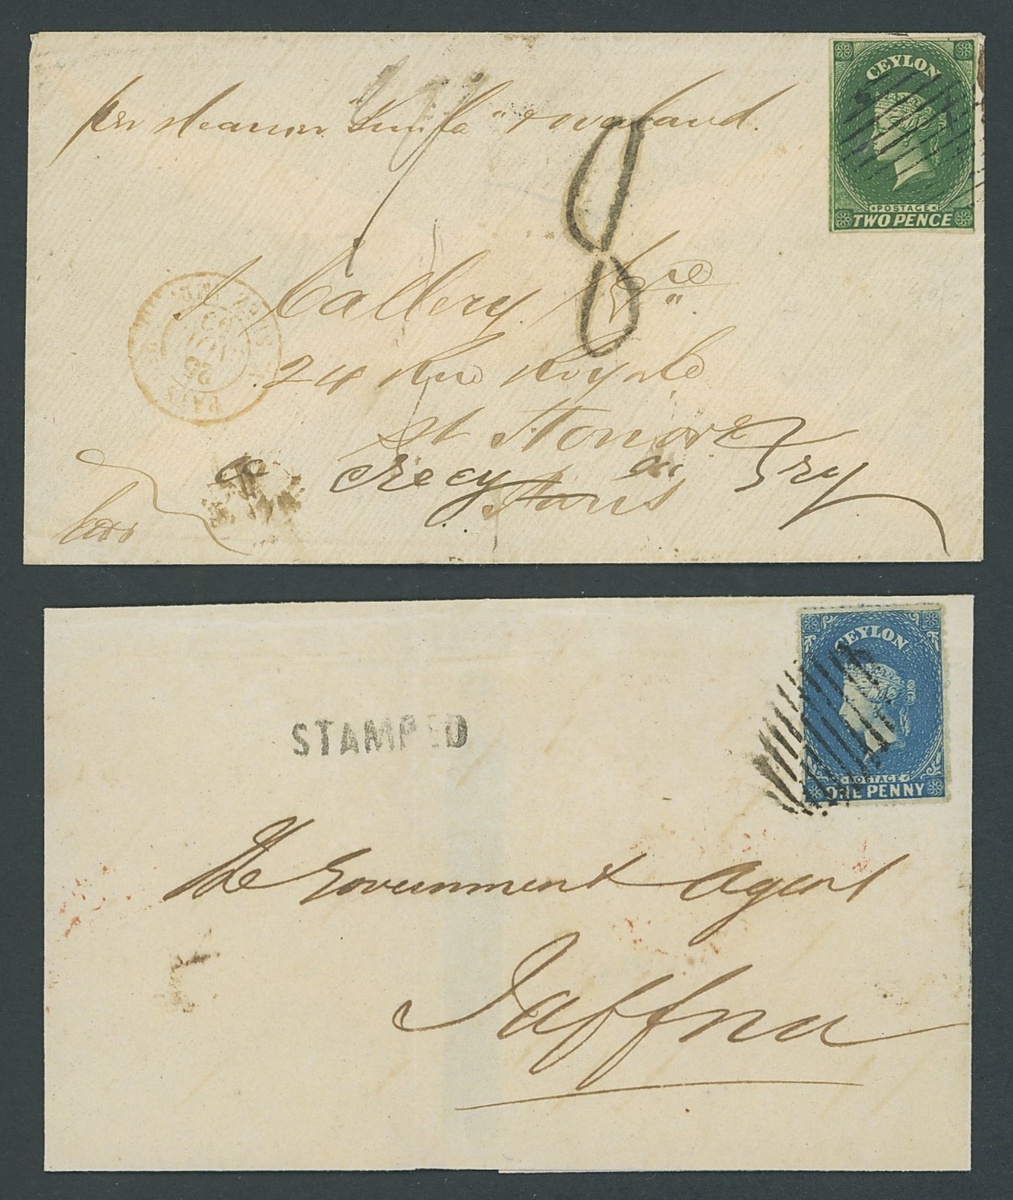 per steamer
CEYLON
POSTAGE
TWO PENCE
8
Callery
24 Rue Royale
St Honoré
Paris
a Crecy en Bry
CEYLON
POSTAGE
ONE PENNY
STAMPED
The Government Agent
Jaffna